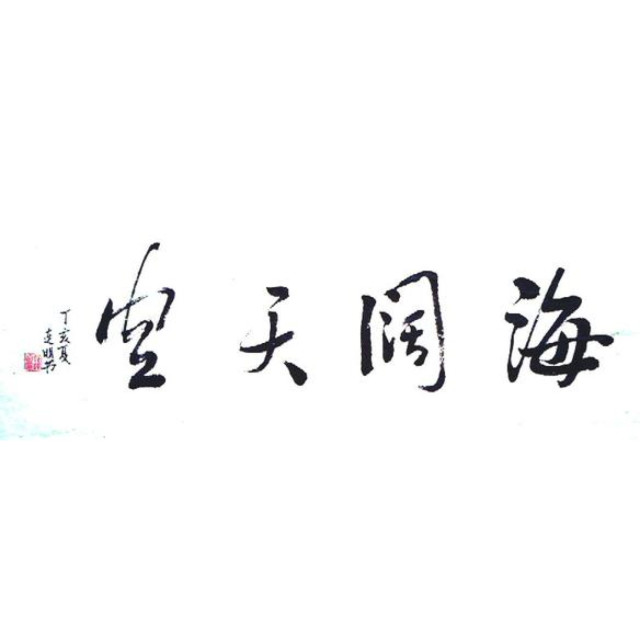 海阔天空
丁亥夏
建明书